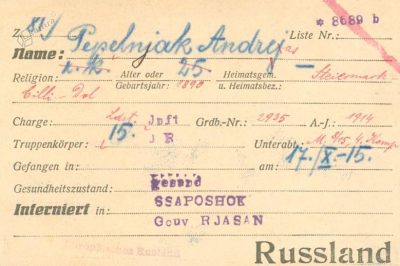 Z. 81/ * 8689 b
Pepelnjak Andrej as Liste Nr.:
Name:
Religion: r. k. Alter oder Geburtsjahr: 1890 25 Heimatsgem. u. Heimatsbez.: Steiermark
Cilli - Dol
Charge: Lst. Inft Grdb.-Nr.: 2935 A.-J.: 1914
Truppenkörper: 15. J R Unterabt.: M. 9/15, 4. Komp
Gefangen in: am: 17./X.-15.
Gesundheitszustand: gesund
SSAPOSHOK
Interniert in: Gouv RJASAN
Europäisches Russland
Russland